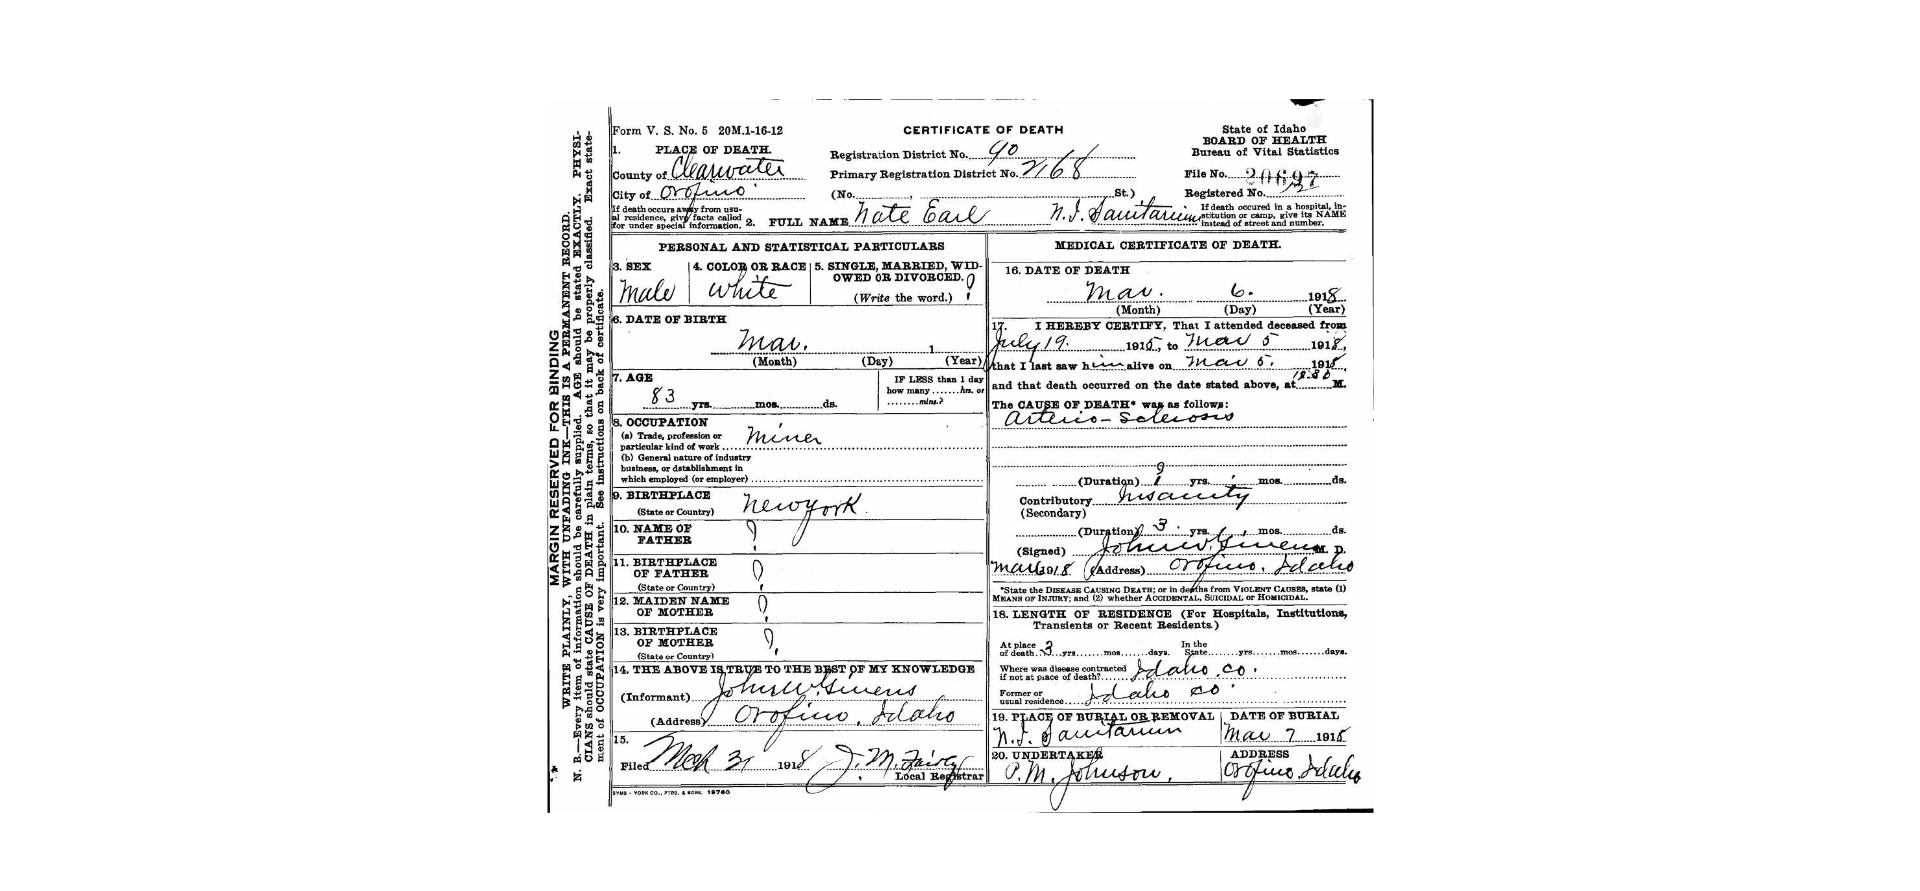 Form V. S. No. 5 20M.1-16-12
CERTIFICATE OF DEATH
State of Idaho
BOARD OF HEALTH
Bureau of Vital Statistics
1. PLACE OF DEATH.
County of Clearwater
City of Orofino
If death occurs away from usu-
al residence, give facts called
for under special information.
Registration District No. 90
Primary Registration District No. 2168
(No. , St.)
File No.
Registered No.
2. FULL NAME Nate Earl
N.I. Sanitarium
If death occured in a hospital, in-
stitution or camp, give its NAME
instead of street and number.
PERSONAL AND STATISTICAL PARTICULARS
3. SEX
Male
4. COLOR OR RACE
White
5. SINGLE, MARRIED, WID-
OWED OR DIVORCED.
?
(Write the word.)
6. DATE OF BIRTH
Mar. 1
(Month) (Day) (Year)
7. AGE
83 yrs. mos. ds.
IF LESS than 1 day
how many hrs. or
mins.?
8. OCCUPATION
(a) Trade, profession or
particular kind of work Miner
(b) General nature of industry
business, or dstablishment in
which employed (or employer)
9. BIRTHPLACE
(State or Country) New York.
10. NAME OF
FATHER ?
11. BIRTHPLACE
OF FATHER ?
(State or Country)
12. MAIDEN NAME
OF MOTHER ?
13. BIRTHPLACE
OF MOTHER ?
(State or Country)
14. THE ABOVE IS TRUE TO THE BEST OF MY KNOWLEDGE
(Informant) John W. Givens
(Address) Orofino, Idaho
15.
Filed Mch 31 1918 J. M. Fairly
Local Registrar
SYMS - YORK CO., PTRS. & BDRS. 19760
MEDICAL CERTIFICATE OF DEATH.
16. DATE OF DEATH
Mar. 6. 1918
(Month) (Day) (Year)
17. I HEREBY CERTIFY, That I attended deceased from
July 19. 1915, to Mar 5 1918,
that I last saw him alive on Mar 5. 1918
and that death occurred on the date stated above, at M.
The CAUSE OF DEATH* was as follows:
Arterio-Sclerosis
(Duration) ? yrs. mos. ds.
Contributory Insanity
(Secondary)
(Duration) 3 yrs. mos. ds.
(Signed) John W. Givens M. D.
1918 (Address) Orofino, Idaho
*State the DISEASE CAUSING DEATH; or in deaths from VIOLENT CAUSES, state (1)
MEANS OF INJURY; and (2) whether ACCIDENTAL, SUICIDAL or HOMICIDAL.
18. LENGTH OF RESIDENCE (For Hospitals, Institutions,
Transients or Recent Residents.)
At place
of death 3 yrs. mos. days.
In the
State yrs. mos. days.
Where was disease contracted
if not at place of death? Idaho Co.
Former or
usual residence Idaho Co.
19. PLACE OF BURIAL OR REMOVAL
N.I. Sanitarium
DATE OF BURIAL
Mar 7 1918
20. UNDERTAKER
P.M. Johnson.
ADDRESS
Orofino Idaho
MARGIN RESERVED FOR BINDING
WRITE PLAINLY, WITH UNFADING INK—THIS IS A PERMANENT RECORD.
N. B.—Every item of information should be carefully supplied. AGE should be stated EXACTLY. PHYSI-
CIANS should state CAUSE OF DEATH in plain terms, so that it may be properly classified. Exact state-
ment of OCCUPATION is very important. See instructions on back of certificate.